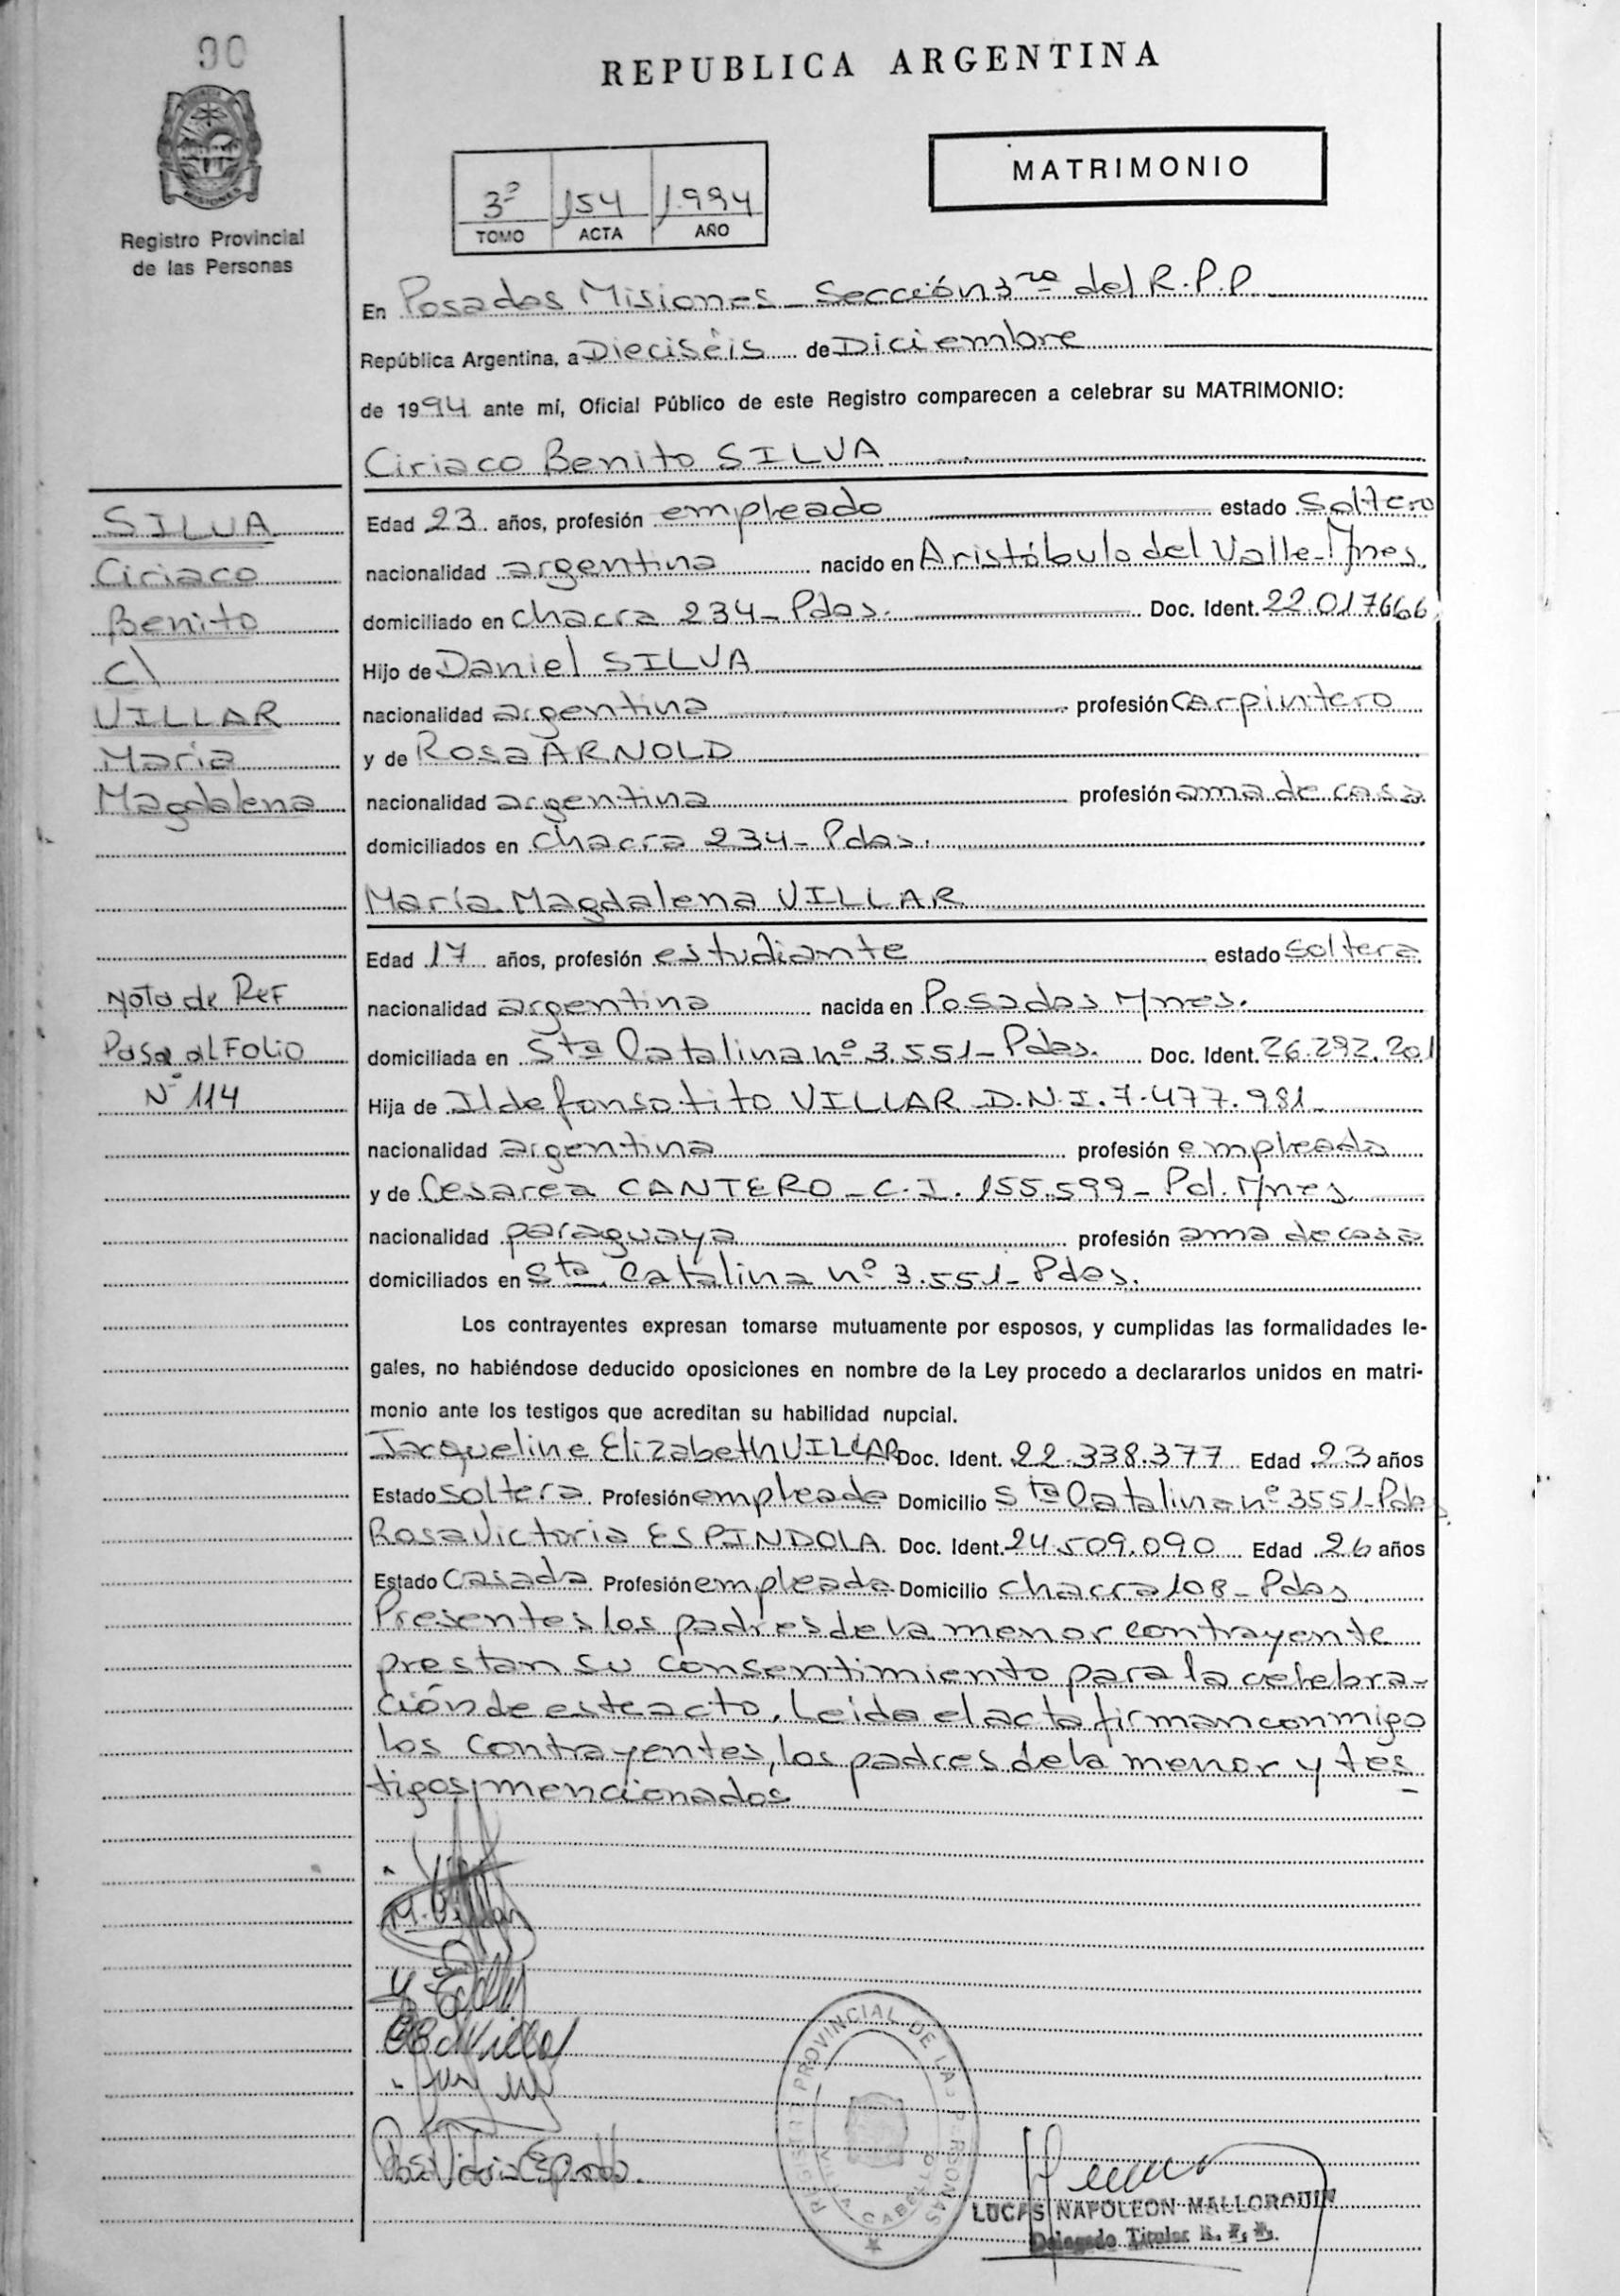 90
REPUBLICA ARGENTINA
MATRIMONIO
3º 154 1.994
TOMO ACTA AÑO
MISIONES
Registro Provincial
de las Personas
En Posadas Misiones - Sección 3ra del R.P.P.
República Argentina, a Dieciséis de Diciembre
de 1994 ante mí, Oficial Público de este Registro comparecen a celebrar su MATRIMONIO:
Ciriaco Benito SILVA
Edad 23 años, profesión empleado estado soltero
nacionalidad argentina nacido en Aristóbulo del Valle - Mnes.
domiciliado en chacra 234 - Pdas. Doc. Ident. 22.017666
Hijo de Daniel SILVA
nacionalidad argentina profesión carpintero
y de Rosa ARNOLD
nacionalidad argentina profesión ama de casa
domiciliados en chacra 234 - Pdas.
SILVA
Ciriaco
Benito
c/
VILLAR
María
Magdalena
María Magdalena VILLAR
Edad 17 años, profesión estudiante estado soltera
nacionalidad argentina nacida en Posadas Mnes.
domiciliada en Sta Catalina nº 3.551 - Pdas. Doc. Ident. 26.292.201
Hija de Ildefonso tito VILLAR D.N.I. 7.477.981
nacionalidad argentina profesión empleado
y de Cesarea CANTERO - C.I. 155.599 - Pol. Mnes
nacionalidad paraguaya profesión ama de casa
domiciliados en Sta. Catalina nº 3.551 - Pdas.
Nota de Ref
Pasa al Folio
Nº 114
Los contrayentes expresan tomarse mutuamente por esposos, y cumplidas las formalidades le-
gales, no habiéndose deducido oposiciones en nombre de la Ley procedo a declararlos unidos en matri-
monio ante los testigos que acreditan su habilidad nupcial.
Jacqueline Elizabeth VILLAR Doc. Ident. 22.338.377 Edad 23 años
Estado soltera Profesión empleada Domicilio Sta Catalina nº 3551 - Pdas
Rosa Victoria ESPINDOLA Doc. Ident. 24.509.090 Edad 26 años
Estado casada Profesión empleada Domicilio chacra 108 - Pdas
Presentes los padres de la menor contrayente
prestan su consentimiento para la celebra-
ción de este acto. Leída el acta firman conmigo
los contrayentes, los padres de la menor y tes
tigos mencionados
M. Villar
REGISTRO PROVINCIAL DE LAS PERSONAS
LUCAS NAPOLEON MALLORQUIN
Delegado Titular R. P. P.